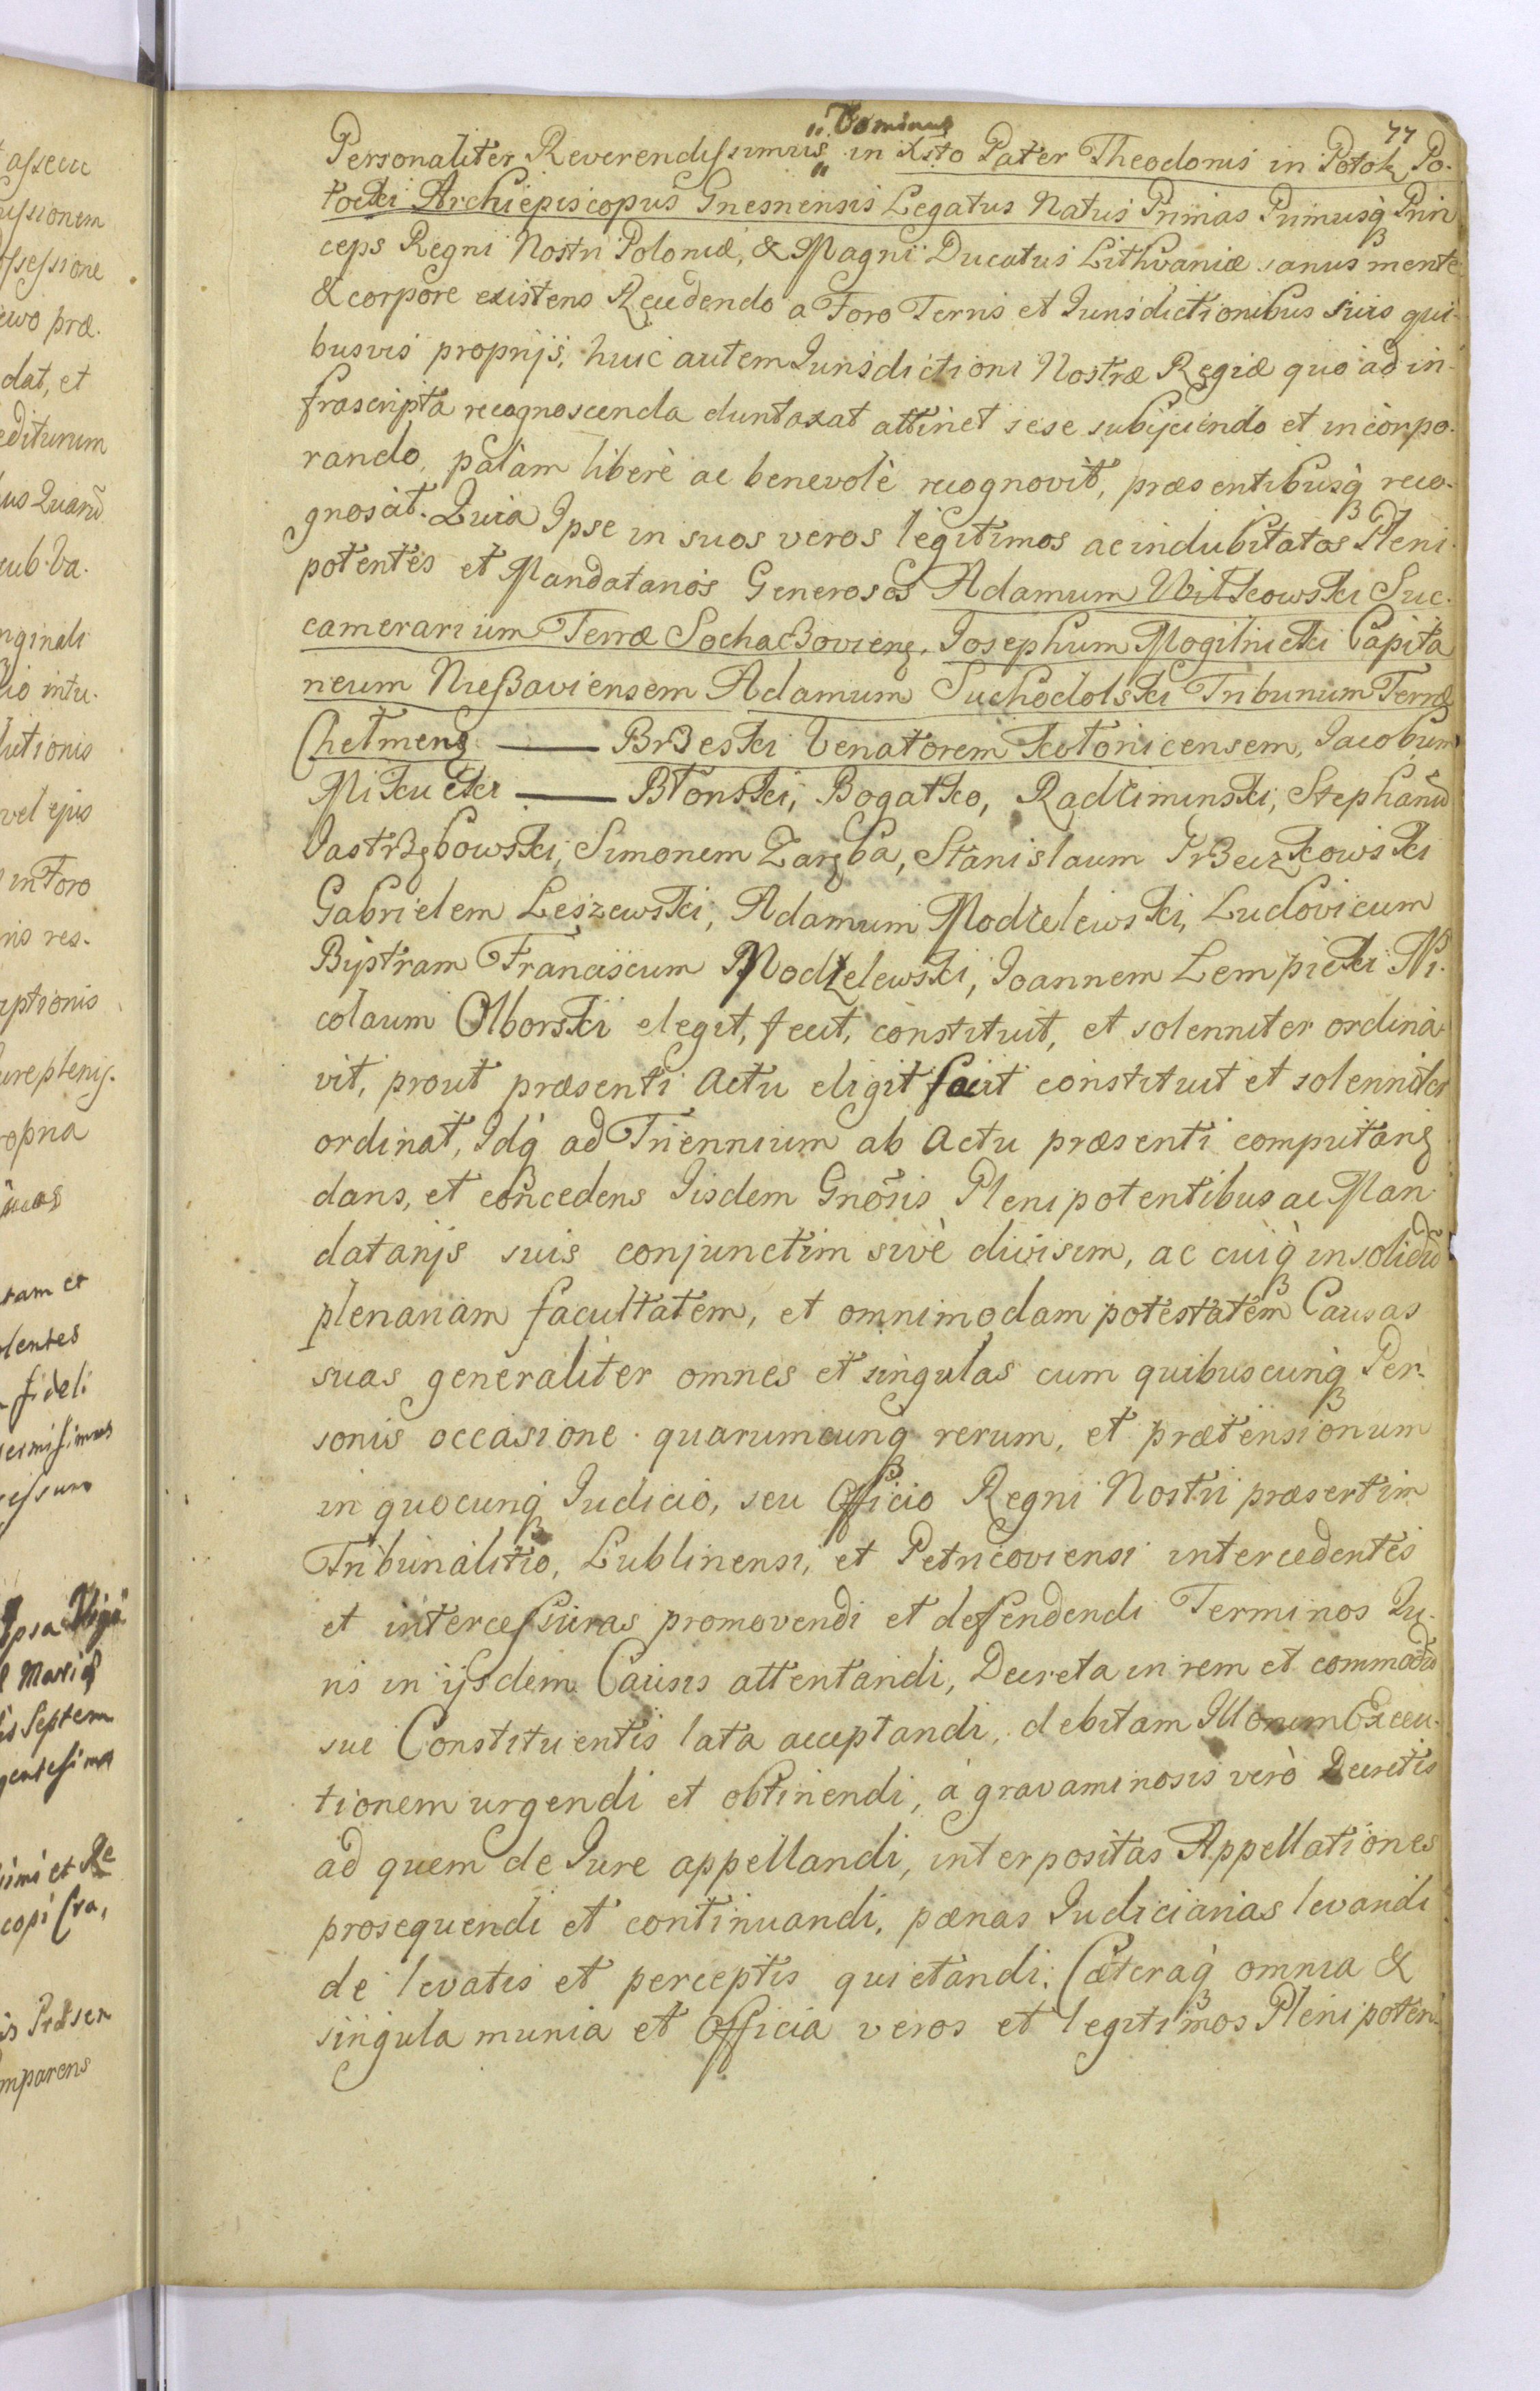 77
Dominus
Personaliter Reverendissimus in Xsto Pater Theodorus in Potok Po-
tocki Archiepiscopus Gnesnensis Legatus Natus Primas Primusq Prin
ceps Regni Nostri Poloniæ, & Magni Ducatus Lithvaniæ sanus mente
& corpore existens Recedendo a Foro Terris et Jurisdictionibus suis qui-
busvis proprijs, huic autem Jurisdictioni Nostræ Regiæ quo ad in-
frascripta recognoscenda duntaxat attinet sese subijciendo et incorpo-
rando, palàm liberè ac benevolè recognovit, præsentibusq reco-
gnoscit. Quia Ipse in suos veros legitimos ac indubitatos Pleni-
potentes et Mandatarios Generosos Adamum Witkowski Suc-
camerarium Terræ Sochaczoviens. Josephum Mogilnicki Capita
neum Nieszaviensem Adamum Suchodolski Tribunum Terræ
Chełmens — Brzeski Venatorem Lotonicensem, Jacobum
Mikucki — Błonski, Bogatko, Radziminski, Stephanū
Jastrzębowski, Simonem Zaręba, Stanislaum Przeczkowski
Gabrielem Leszewski, Adamum Modzelewski, Ludovicum
Bystram Franciscum Modzelewski, Joannem Lempicki Ni-
colaum Olborski elegit, fecit, constituit, et solenniter ordina-
vit, prout præsenti Actu eligit facit constituit et solenniter
ordinat, Idq ad Triennium ab Actu præsenti computans
dans, et concedens Iisdem Gnosis Plenipotentibus ac Man-
datarijs suis conjunctim sivè divisim, ac cuiq in solidū
plenariam facultatem, et omnimodam potestatem Causas
suas generaliter omnes et singulas cum quibuscunq Per-
sonis occasione quarumcunq rerum, et prætensionum
in quocunq Judicio, seu Officio Regni Nostri præsertim
Tribunalitio, Lublinensi, et Petricoviensi intercedentes
et intercessuras promovendi et defendendi Terminos Ju-
ris in ijsdem Causis attentandi, Decreta in rem et commodū
sui Constituentis lata acceptandi, debitam Illorum Execu-
tionem urgendi et obtinendi, à gravaminosis verò Decretis
ad quem de Jure appellandi, interpositas Appellationes
prosequendi et continuandi, pænas Judiciarias levandi
de levatis et perceptis quietandi, Cæteraq omnia &
singula munia et Officia veros et legitimos Plenipoten-